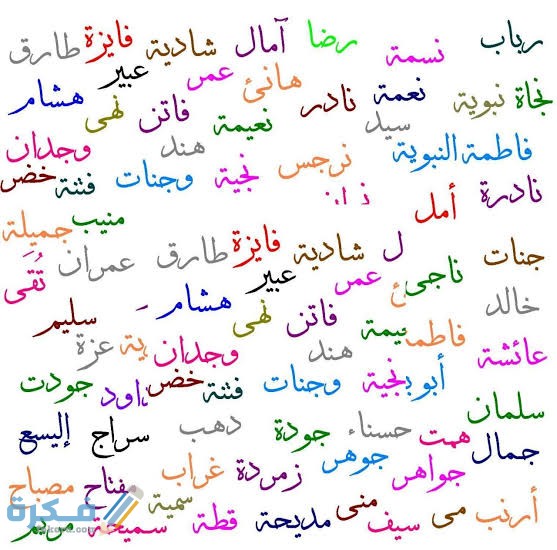 رباب نسمة رضا آمال شادية فايزة طارق
نجاة نبوية نعمة هانئ عمر عبير
سيد نادر نعيمة فاتن نهى هشام
فاطمة النبوية نرجس نجية هند وجنات فتنة وجدان خضر
نادرة أمل منيب جميلة
جنات ل شادية فايزة طارق عمران تُقَى
خالد ناجى عمر عبير هشام سليم
عائشة فاطمة يمة فاتن نهى
هند وجدان ية عزة
سلمان أبو نجية وجنات فتنة خضر اود جودت
جمال همت حسناء جودة دهب سراج إليسع
جواهر جوهر زمردة غراب مفتاح مصباح
أرنب مى سيف منى مديحة قطة سمية سميحة مريم
فكرة